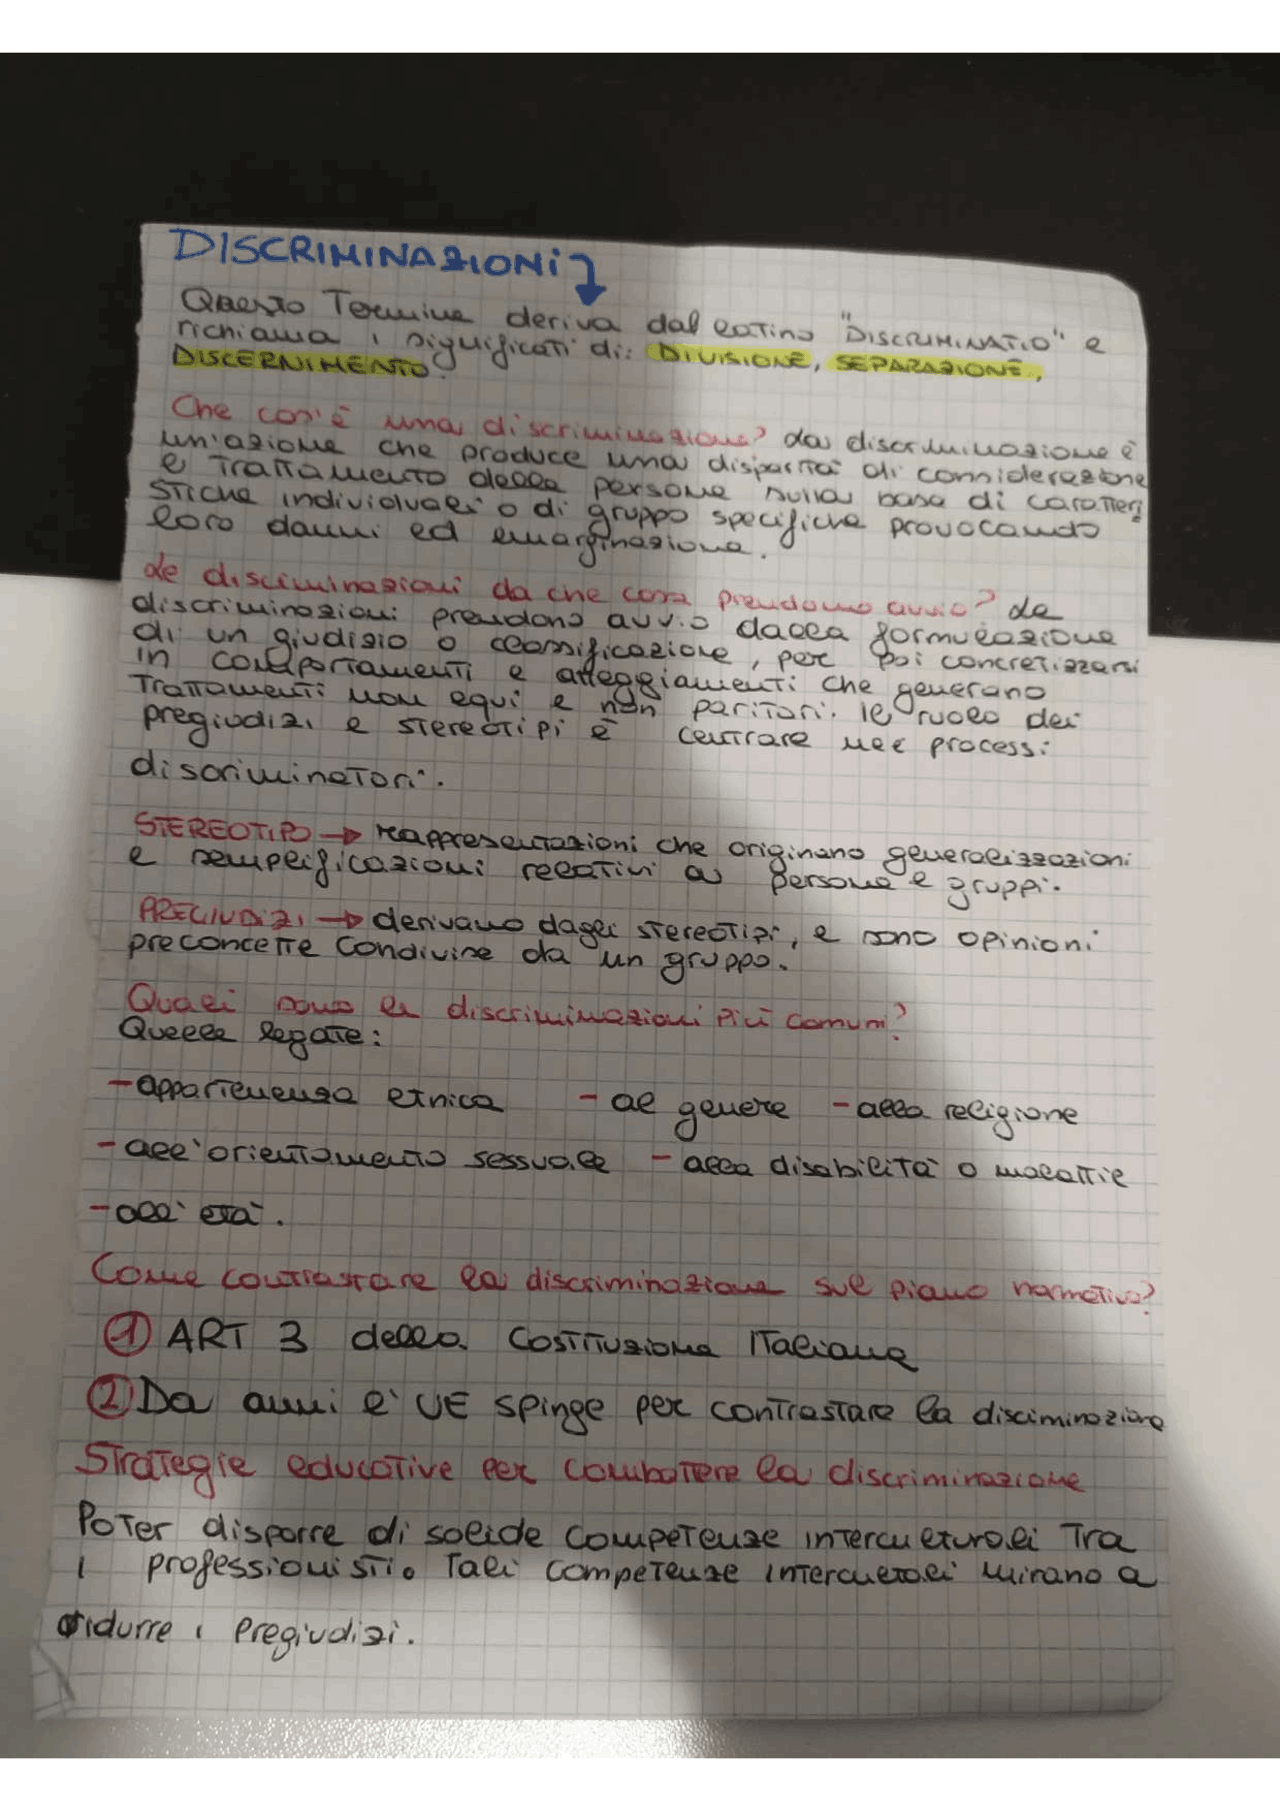 DISCRIMINAZIONI
Questo Termine deriva dal latino "DISCRIMINATIO" e
richiama i significati di: DIVISIONE, SEPARAZIONE,
DISCERNIMENTO.
Che cos'è una discriminazione? La discriminazione è
un'azione che produce una disparità di considerazione
e Trattamento delle persone sulla base di caratteri
stiche individuali o di gruppo specifiche provocando
loro danni ed emarginazione.
Le discriminazioni da che cosa prendono avvio? Le
discriminazioni prendono avvio dalla formulazione
di un giudizio o classificazione, per poi concretizzarsi
in comportamenti e atteggiamenti che generano
Trattamenti non equi e non paritari. Il ruolo dei
pregiudizi e stereotipi è centrale nei processi
discriminatori.
STEREOTIPO → rappresentazioni che originano generalizzazioni
e semplificazioni relativi a persone e gruppi.
PREGIUDIZI → derivano dagli stereotipi, e sono opinioni
preconcette condivise da un gruppo.
Quali sono le discriminazioni più comuni?
Quelle legate:
- appartenenza etnica - al genere - alla religione
- all'orientamento sessuale - alla disabilità o malattie
- all'età.
Come contrastare la discriminazione sul piano normativo?
1 ART 3 della Costituzione Italiana
2 Da anni l'UE spinge per contrastare la disciminazione
Strategie educative per combattere la discriminazione
Poter disporre di solide competenze interculturali Tra
i professionisti. Tali competenze interculturali mirano a
ridurre i pregiudizi.